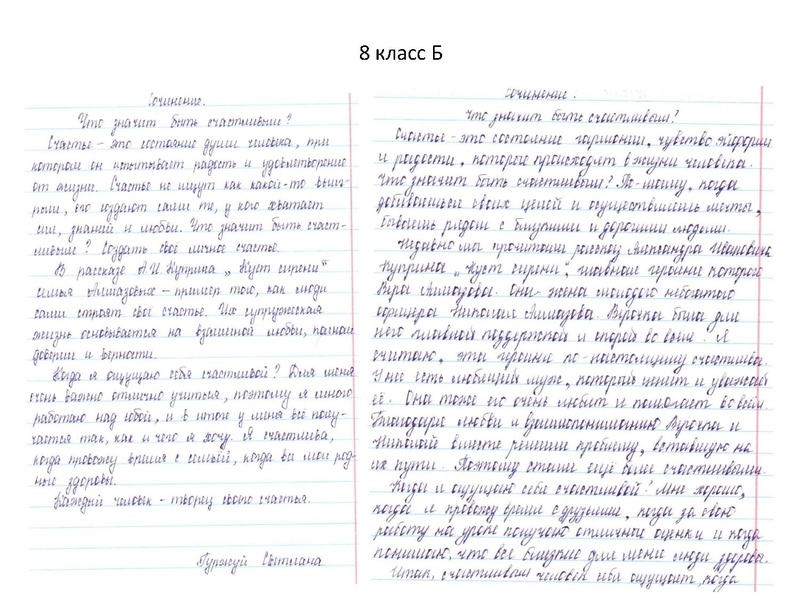 8 класс Б
Сочинение.
Что значит быть счастливым?
Счастье – это состояние души человека, при
котором он испытывает радость и удовлетворение
от жизни. Счастье не ищут как какой-то выиг-
рыш, его создают сами те, у кого хватает
сил, знаний и любви. Что значит быть счаст-
ливым? Создать своё личное счастье.
В рассказе А.И. Куприна „Куст сирени"
семья Алмазовых – пример того, как люди
сами строят своё счастье. Их супружеская
жизнь основывается на взаимной любви, полном
доверии и верности.
Когда я ощущаю себя счастливой? Для меня
очень важно отлично учиться, поэтому я много
работаю над собой, и в итоге у меня всё полу-
чается так, как и чего я хочу. Я счастлива,
когда провожу время с семьёй, когда все мои род-
ные здоровы.
Каждый человек – творец своего счастья.
Светлана
Сочинение.
Что значит быть счастливым?
Счастье – это состояние гармонии, чувство эйфории
и радости, которое происходят в жизни человека.
Что значит быть счастливым? По-моему, когда
добиваешься своих целей и осуществляешь мечты,
бываешь рядом с близкими и дорогими людьми.
Недавно мы прочитали рассказ Александра Ивановича
Куприна „Куст сирени", главная героиня которого
Вера Алмазова. Она – жена молодого небогатого
офицера Николая Алмазова. Верочка была для
него главной поддержкой и опорой во всём. Я
считаю, эта героиня по-настоящему счастлива.
У неё есть любящий муж, который ценит и уважает
её. Она тоже его очень любит и помогает во всём.
Благодаря любви и взаимопониманию Верочка и
Николай вместе решили проблему, вставшую на
их пути. Поэтому стали ещё более счастливыми.
Когда я ощущаю себя счастливой? Мне хорошо,
когда я провожу время с друзьями, когда за свою
работу на уроке получаю отличные оценки и когда
понимаю, что все близкие для меня люди здоровы.
Итак, счастливым человек себя ощущает, когда